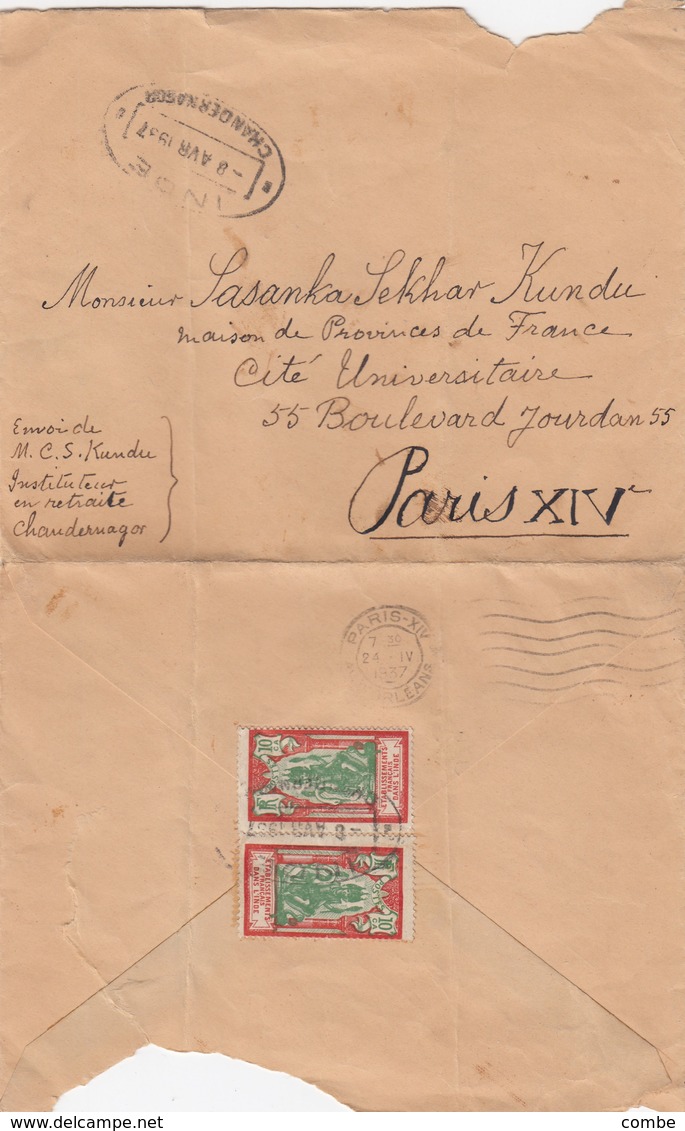 CHANDERNAGOR
- 8 AVR 1937
INDE
Monsieur Sasanka Sekhar Kundu
maison de Provinces de France
Cité Universitaire
55 Boulevard Jourdan 55
Paris XIVe
Envoi de
M. C. S. Kundu
Instituteur
en retraite
Chandernagor
PARIS-XIV
7 30
24 - IV
1937
ORLEANS
10
CA
POSTES
RF
ETABLISSEMENTS
FRANÇAIS
DANS L'INDE
- 8 AVR 1937
ETABLISSEMENTS
FRANÇAIS
DANS L'INDE
RF
POSTES
10
CA
combe